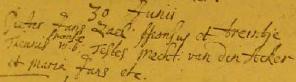 30 Junii
Pieter Jans Zael sponsus et breintje
Theunis m.b. Testes pracht. van den Acker
et maria Jans etc.